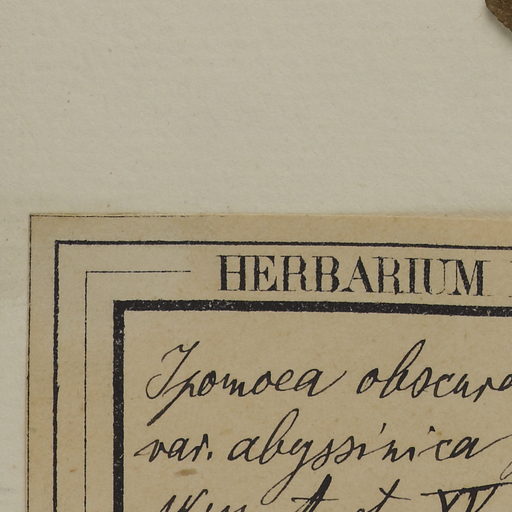 HERBARIUM
Ipomoea obscura
var. abyssinica